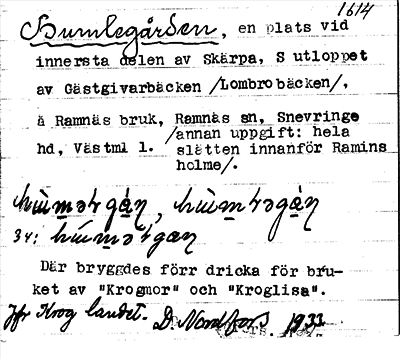 1614
Humlegården, en plats vid
innersta delen av Skärpa, S utloppet
av Gästgivarbäcken /Lombrobäcken/,
å Ramnäs bruk, Ramnäs sn, Snevringe
hd, Västml l. /annan uppgift: hela
slätten innanför Ramins
holme/.
34:
Där bryggdes förr dricka för bru-
ket av "Krogmor" och "Kroglisa".
Jfr Krog landet. D. Nordfors. 1933